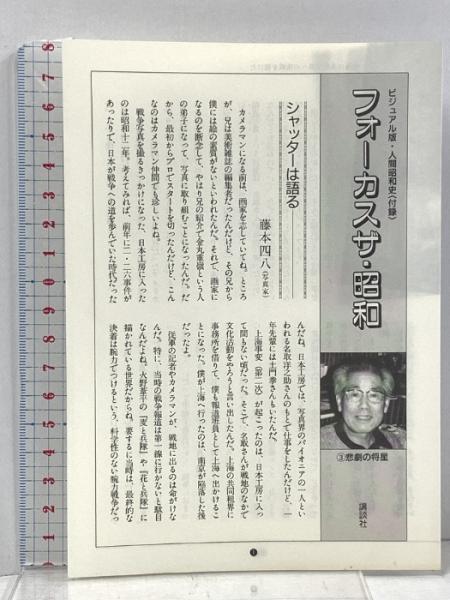 ビジュアル版・人間昭和史〈付録〉
フォーカスザ・昭和
③悲劇の将星
講談社
シャッターは語る
藤本四八〈写真家〉
カメラマンになる前は、画家を志していてね。ところ
が、兄は美術雑誌の編集者だったんだけど、その兄から
僕には絵の素質がないといわれたんだ。それで、画家に
なるのを断念して、やはり兄の紹介で金丸重嶺という人
の弟子になって、写真に取り組むことになったんだ。だ
から、最初からプロでスタートを切ったんだけど、こん
なのはカメラマン仲間でも珍しいよね。
戦争写真を撮るきっかけになった、日本工房に入った
のは昭和十二年。考えてみれば、前年に二・二六事件が
あったりで、日本が戦争への道を歩んでいた時代だった
んだね。日本工房では、写真界のパイオニアの一人とい
われる名取洋之助さんのもとで仕事をしたんだけど、一
年先輩には土門拳さんもいたんだ。
上海事変(第二次)が起こったのは、日本工房に入っ
て間もない頃だった。そこで、名取さんが戦地のなかで
文化活動をやろうと言い出したんだ。上海の共同租界に
事務所を借りて、僕も報道班員として上海へ出かけるこ
とになった。僕が上海へ行ったのは、南京が陥落した後
だったよ。
従軍の記者やカメラマンが、戦地に出るのは命がけな
んだ。特に、当時の戦争報道は第一線に行かないと駄目
なんだよね。火野葦平の『麦と兵隊』や『花と兵隊』に
描かれている世界だからね。要するに当時は、最終的な
決着は腕力でつけるという、科学性のない腕力戦争だっ
1
8
7
6
5
8
7
6
5